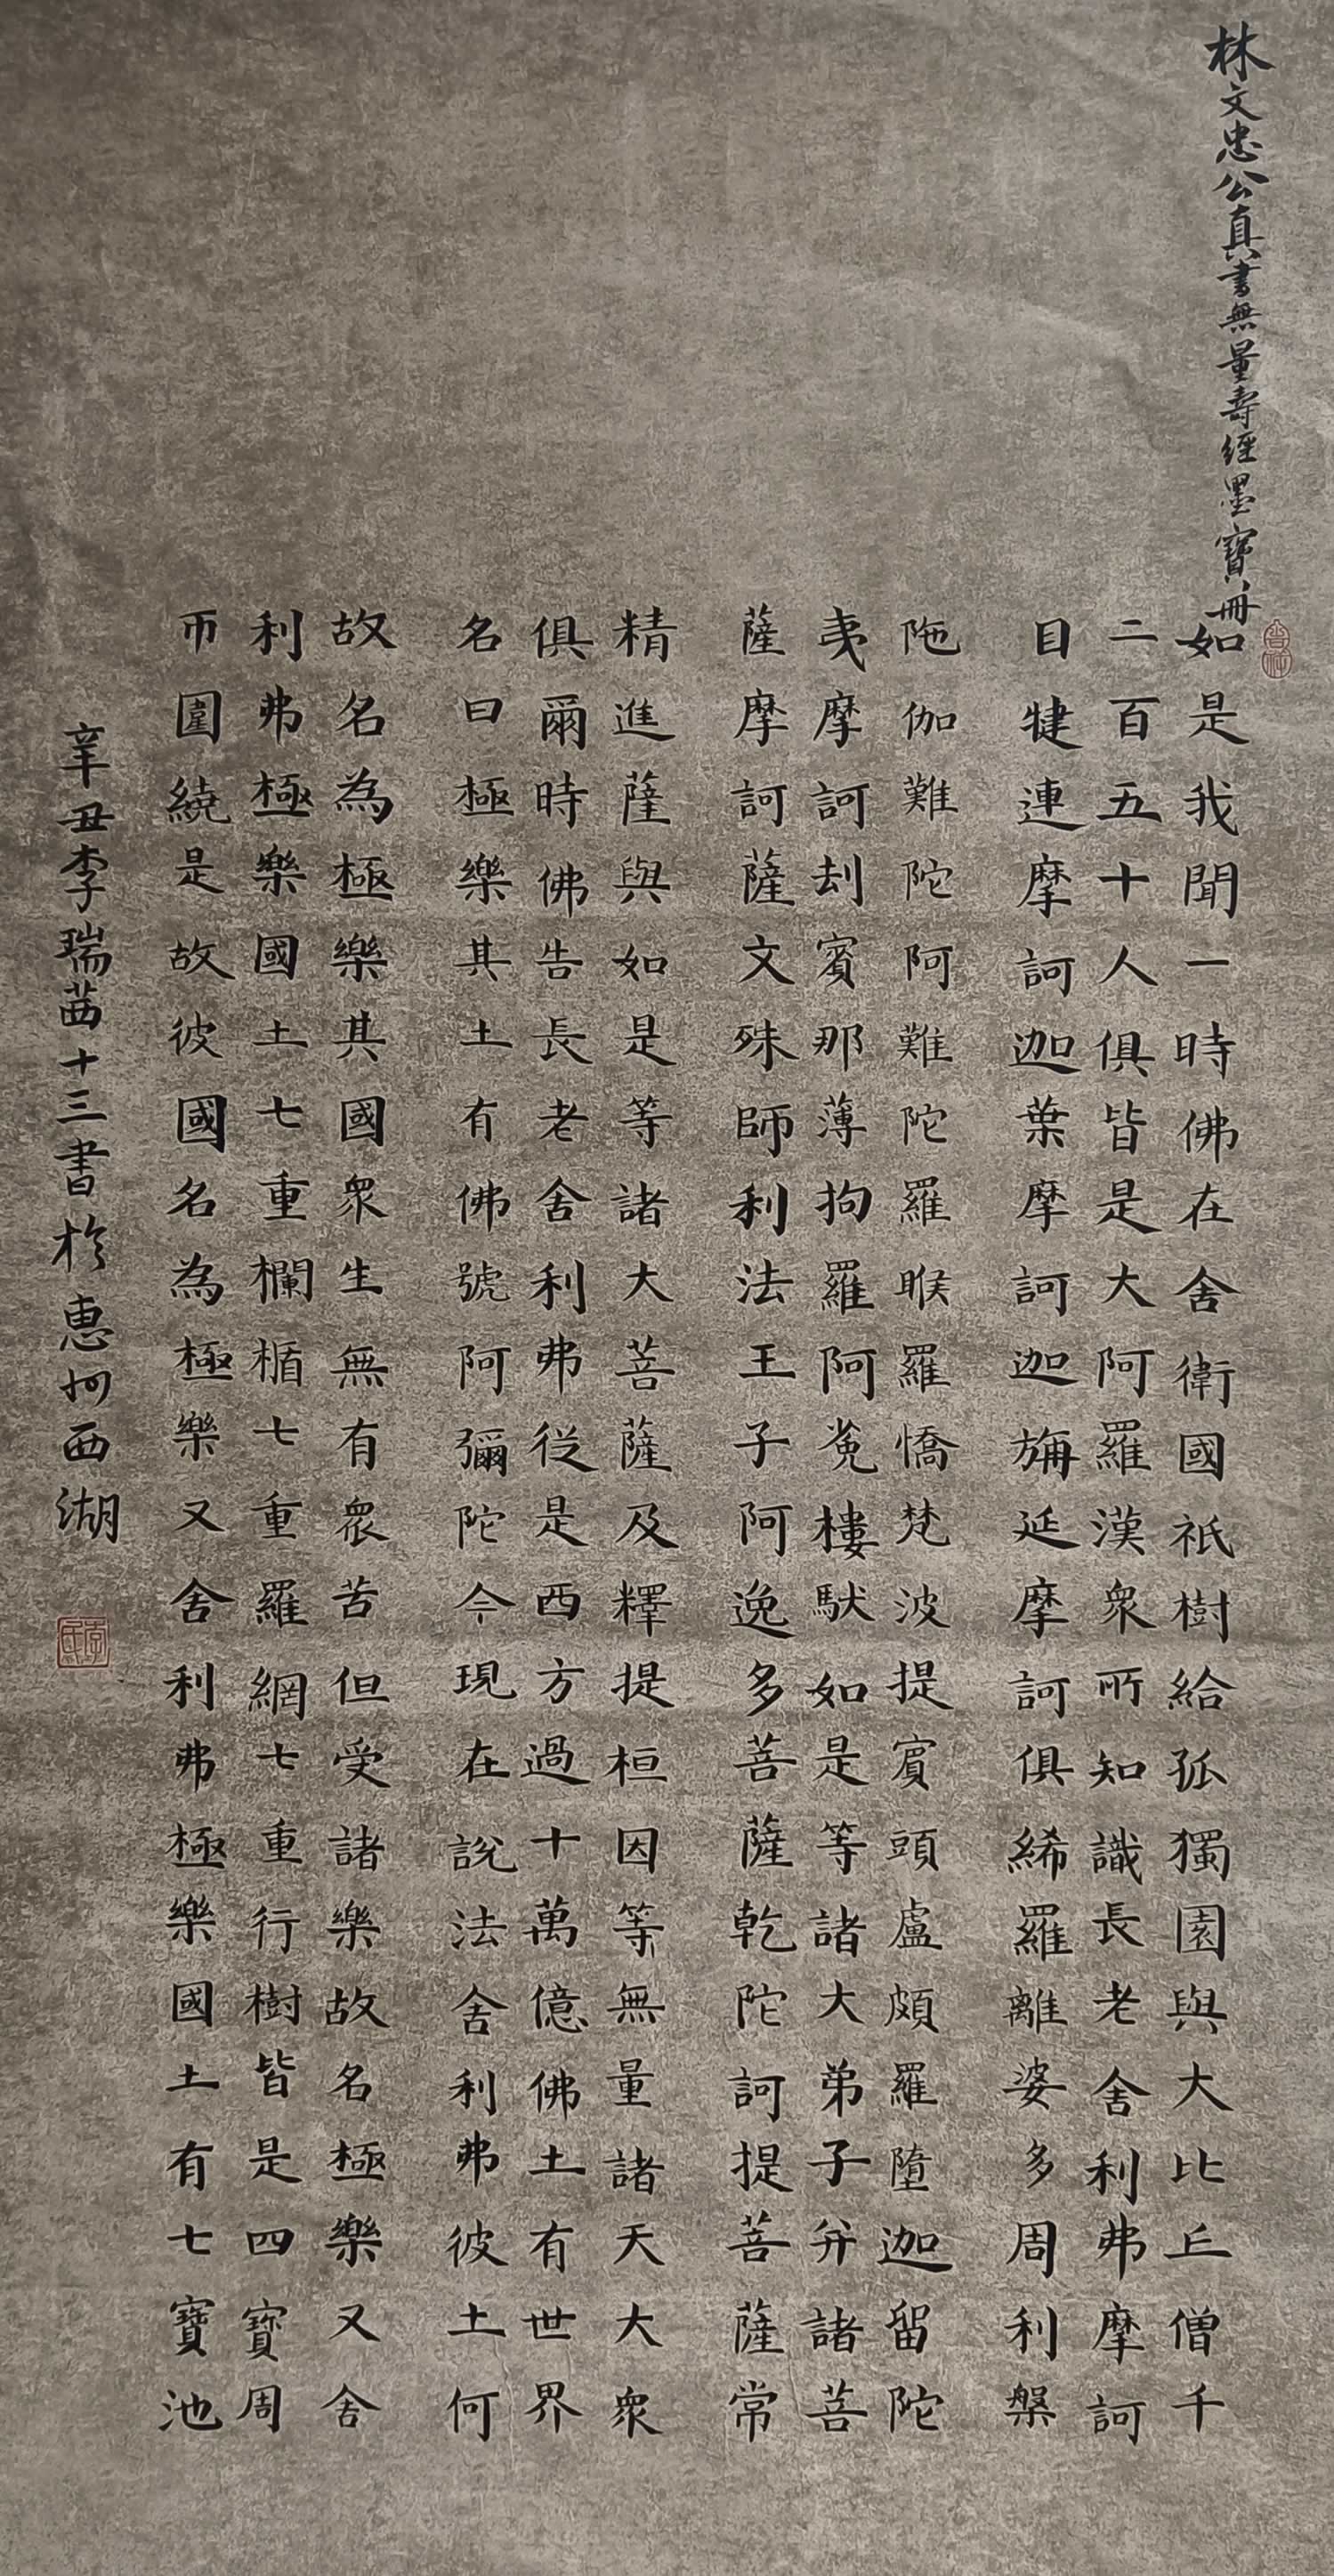 林文忠公真書無量壽經墨寶冊
如是我聞一時佛在舍衛國祇樹給孤獨園與大比丘僧千
二百五十人俱皆是大阿羅漢眾所知識長老舍利弗摩訶
目犍連摩訶迦葉摩訶迦旃延摩訶俱絺羅離婆多周利槃
陁伽難陀阿難陀羅睺羅憍梵波提賓頭盧頗羅墮迦留陀
夷摩訶劫賓那薄拘羅阿㝹樓馱如是等諸大弟子并諸菩
薩摩訶薩文殊師利法王子阿逸多菩薩乾陀訶提菩薩常
精進薩與如是等諸大菩薩及釋提桓因等無量諸天大眾
俱爾時佛告長老舍利弗從是西方過十萬億佛土有世界
名曰極樂其土有佛號阿彌陀今現在說法舍利弗彼土何
故名為極樂其國眾生無有眾苦但受諸樂故名極樂又舍
利弗極樂國土七重欄楯七重羅網七重行樹皆是四寶周
帀圍繞是故彼國名為極樂又舍利弗極樂國土有七寶池
辛丑李瑞茜十三書於惠州西湖
李